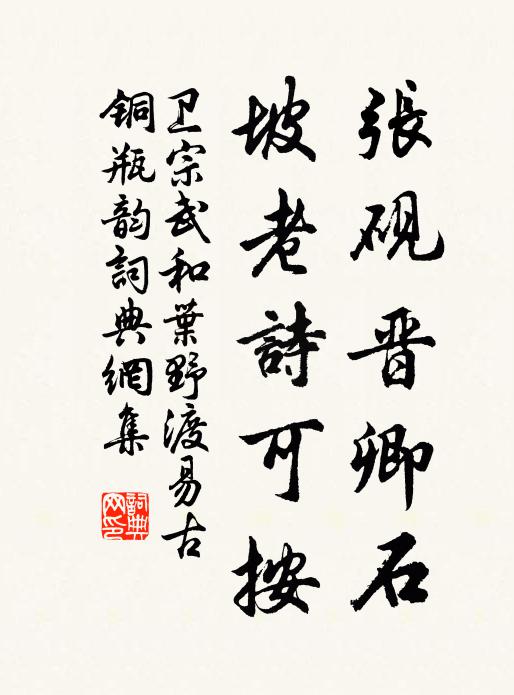 張硯晋卿石
坡老詩可按
卫宗武和葉野渡易古
铜瓶韵詞典網集
詞典
网印